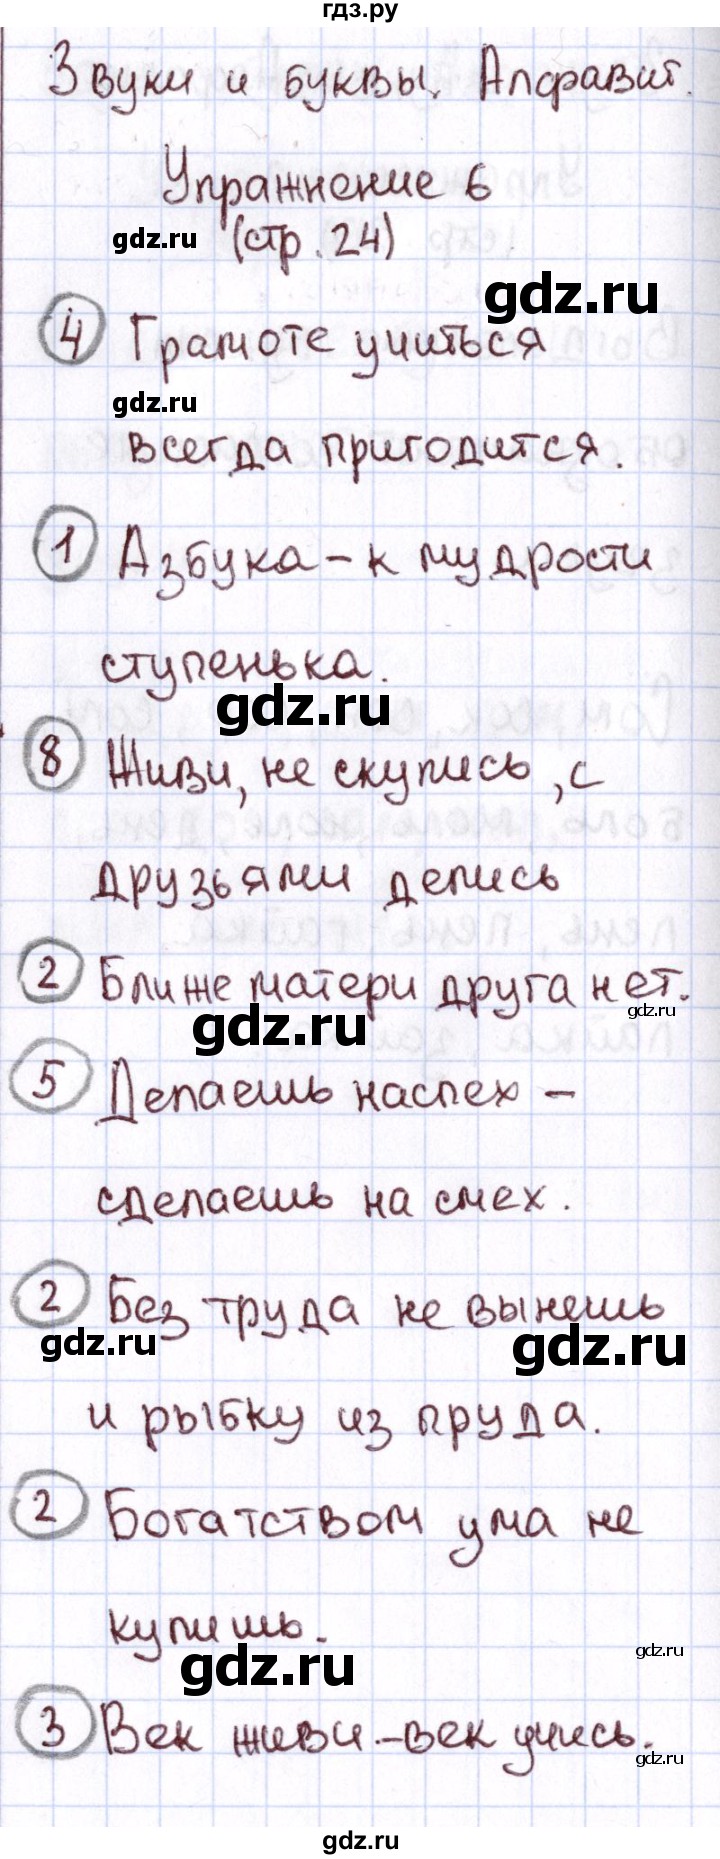 гдз.ру
Звуки и буквы. Алфавит.
Упражнение 6
gdz.ru (стр. 24)
gdz.ru
4 Грамоте учиться
gdz.ru
всегда пригодится.
1 Азбука - к мудрости
ступенька.
gdz.ru
8 Живи, не скупись, с
друзьями делись
2 Ближе матери друга нет.
gdz.ru
gdz.ru
5 Делаешь наспех -
сделаешь на смех.
2 Без труда не вынешь
gdz.ru
gdz.ru
и рыбку из пруда.
2 Богатством ума не
купишь.
gdz.ru
gdz.ru
3 Век живи - век учись.
gdz.ru
gdz.ru